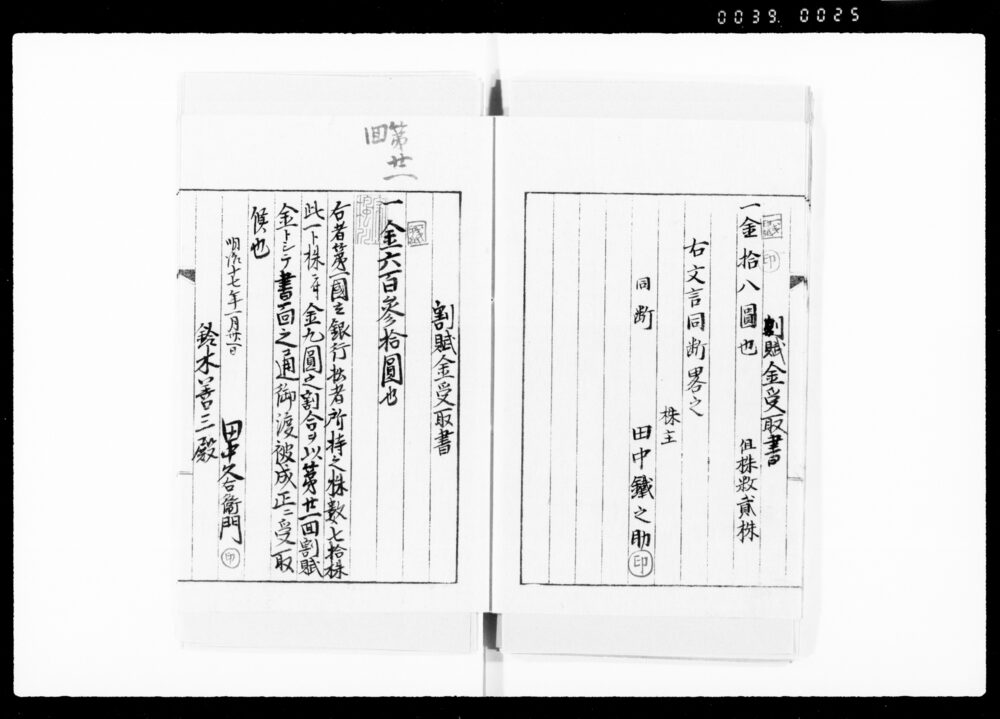 0039.0025
割賦金受取書
一金拾八圓也 但株数貳株
印
右文言同断畧之
株主
同断 田中鐵之助 印
第廿一
回
割賦金受取書
一金六百参拾圓也
右者第一國立銀行拙者所持之株数七拾株
此一ト株ニ付金九圓之割合ヲ以第廿一回割賦
金トシテ書面之通御渡被成正ニ受取
候也
明治十七年一月廿一日
田中久右衛門 印
鈴木善三殿